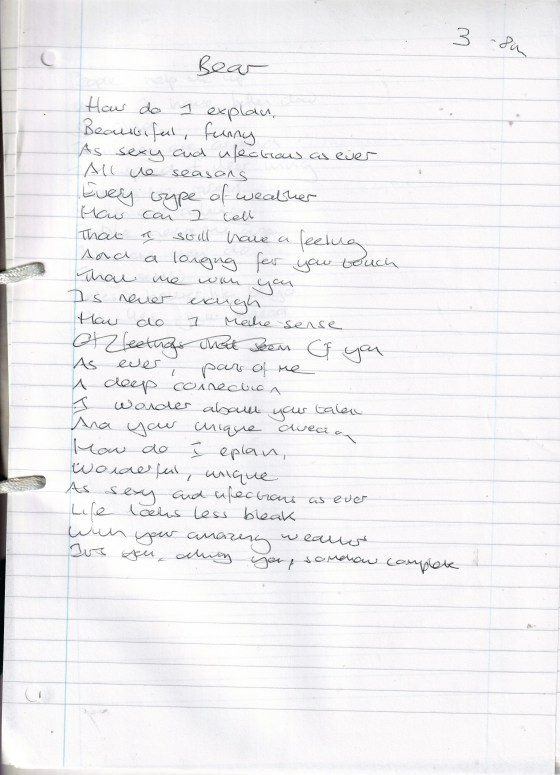 3
Bear
How do I explain,
Beautiful, funny
As sexy and infectious as ever
All the seasons
Every type of weather
How can I tell
That I still have a feeling
And a longing for your touch
That me with you
Is never enough
How do I make sense
Of feelings that seem Of you
As ever, part of me
A deep connection
I wonder about your talent
And your unique
How do I eplain,
Wonderful, unique
As sexy and infectious as ever
Life looks less bleak
With your amazing weather
It's you, you, somehow complete